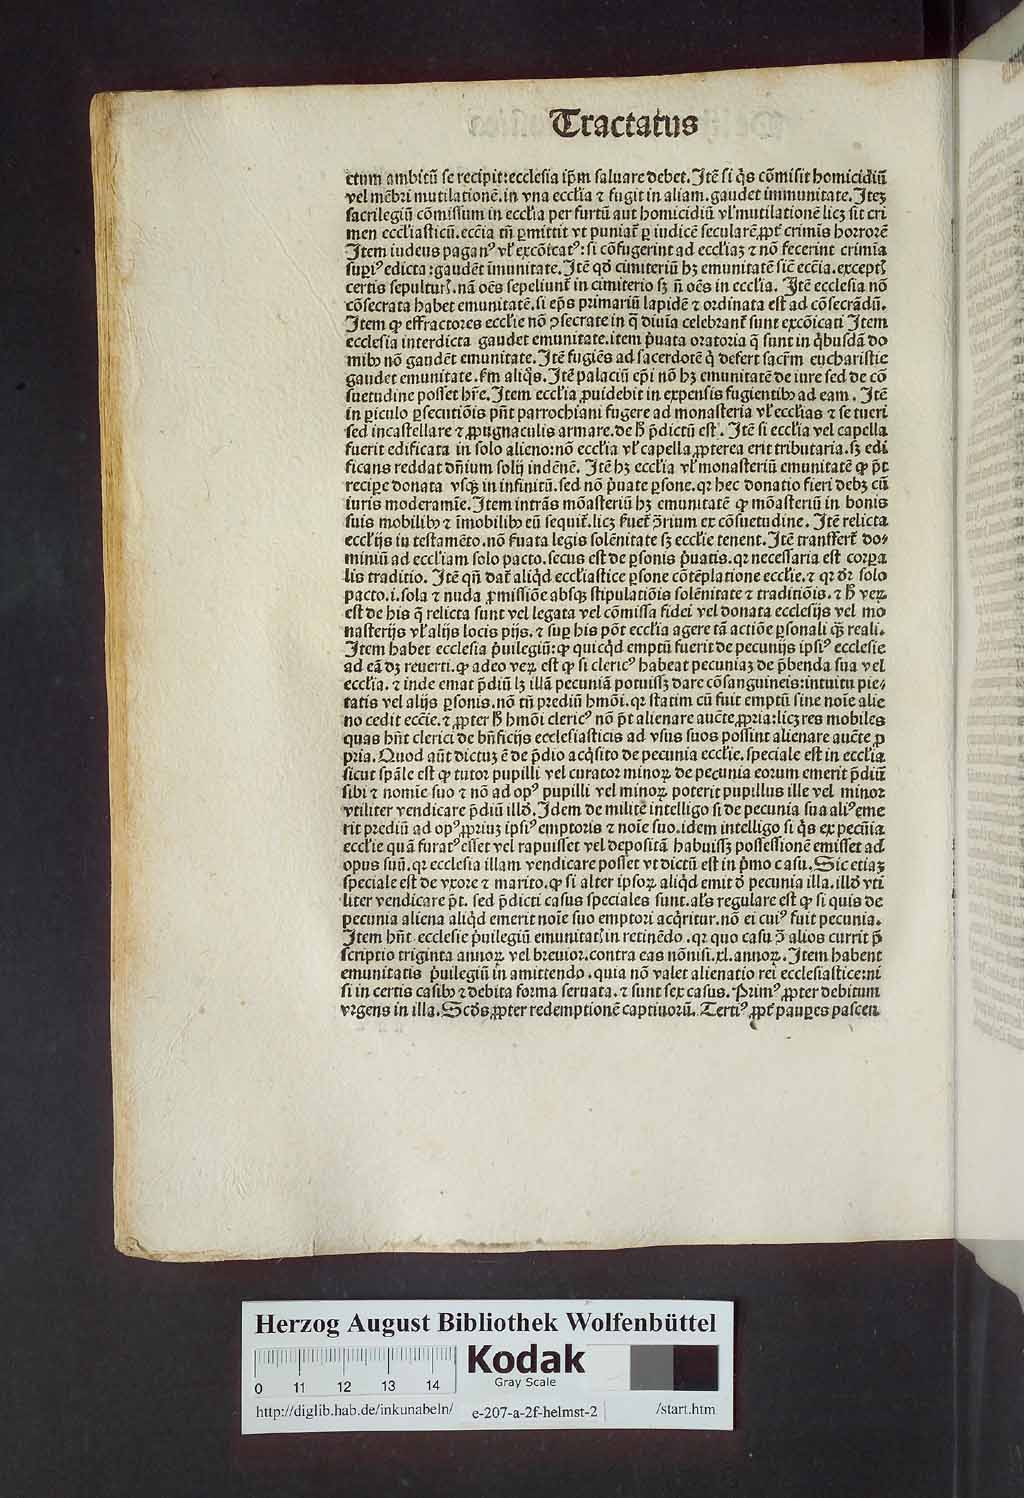 Tractatus
ctum ambitū se recipit: ecclesia ip̄m saluare debet. Itē si q̇s cōmisit homicidiū
vel mēbri mutilationē. in vna ecclīa ⁊ fugit in aliam. gaudet immunitate. Iteꝫ
sacrilegiū cōmissum in ecclīa per furtū aut homicidiū vl̓ mutilationē licꝫ sit cri
men ecclīasticū. eccīa tn̄ ꝑmittit vt puniat᷑ ꝑ iudicē secularē. ꝓpt̄ crimīs horrorē
Item iudeus paganꝰ vl̓ excōicatꝰ: si cōfugerint ad ecclīaꝫ ⁊ nō fecerint crimīa
supiꝰ edicta: gaudēt īmunitate. Itē qd̓ cimiteriū hꝫ emunitatē sic̄ eccīa. except̓
certis sepultur̓. nā oēs sepeliunt᷑ in cimiterio sꝫ n̄ oēs in ecclīa. Itē ecclesia nō
cōsecrata habet emunitatē. si ep̄s primariū lapidē ⁊ ordinata est ad cōsecrādū.
Item ꝙ effractores ecclīe nō ↄsecrate in q̄ diuīa celebrant᷑ sunt excōicati Item
ecclesia interdicta gaudet emunitate. item p̓uata oratoria q̄ sunt in q̇busdā do
mibꝰ nō gaudēt emunitate. Itē fugiēs ad sacerdotē q̇ defert sacr̄m eucharistie
gaudet emunitate. ẜm aliq̇s. Itē palaciū ep̄i nō hꝫ emunitatē de iure sed de cō
suetudine posset hr̄e. Item ecclīa ꝓuidebit in expensis fugientibꝰ ad eam. Itē
in ꝑiculo ꝑsecutiōis pn̄t parrochiani fugere ad monasteria vl̓ ecclīas ⁊ se tueri
sed incastellare ⁊ ꝓpugnaculis armare. de h̓ p̄dictū est. Itē si ecclīa vel capella
fuerit edificata in solo alieno: nō ecclīa vl̓ capella ꝓpterea erit tributaria. sꝫ edi
ficans reddat dn̄ium solij indēnē. Itē hꝫ ecclīa vl̓ monasteriū emunitatē ꝙ p̄t
reciꝑe donata vsqꝫ in infinitū. sed nō p̓uate ꝑsone. qꝛ hec donatio fieri debꝫ cū
iuris moderamīe. Item intrās mōasteriū hꝫ emunitatē ꝙ mōasteriū in bonis
suis mobilibꝰ ⁊ īmobilibꝰ eū sequit᷑. licꝫ ẜuet᷑ ↄ̄rium ex cōsuetudine. Itē relicta
ecclījs in testamēto. nō ẜuata legis solēnitate sꝫ ecclīe tenent. Itē transfert᷑ do⸗
miniū ad eccl̓iam solo pacto. secus est de ꝑsonis p̓uatis. qꝛ necessaria est corpa
lis traditio. Itē qn̄ dat᷑ aliq̇d ecclīastice ꝑsone cōtēplatione ecclīe. ⁊ qꝛ dr̄ solo
pacto. i. sola ⁊ nuda ꝓmissiōe absqꝫ stipulatiōis solēnitate ⁊ traditiōis. ⁊ h̓ veꝝ
est de his q̄ relicta sunt vel legata vel cōmissa fidei vel donata ecclesijs vel mo
nasterijs vl̓ alijs locis pijs. ⁊ suꝑ his pōt ecclīa agere tā actiōe ꝑsonali qꝫ reali.
Item habet ecclesia p̓uilegiū: ꝙ quicq̇d emptū fuerit de pecunijs ipsiꝰ ecclesie
ad eā dꝫ reuerti. ꝙ adeo veꝝ est ꝙ si clericꝰ habeat pecuniaꝫ de p̄benda sua vel
ecclīa. ⁊ inde emat p̄diū lꝫ illā pecuniā potuissꝫ dare cōsanguineis: intuitu pie⸗
tatis vel alijs ꝑsonis. nō tn̄ prediū hmōi. qꝛ statim cū fuit emptū sine noīe alie
no cedit eccīe. ⁊ ꝓpter h̓ hmōi clericꝰ nō p̄t alienare aucte ꝓpria: licꝫ res mobiles
quas hn̄t clerici de bn̄ficijs ecclesiasticis ad vsus suos possint alienare aucte ꝓ
pria. Quod aūt dictuꝫ ē de p̄dio acq̇sito de pecunia ecclīe. speciale est in ecclīa
sicut spāle est ꝙ tutor pupilli vel curator minoꝝ de pecunia eorum emerit p̄diū
sibi ⁊ nomīe suo ⁊ nō ad opꝰ pupilli vel minoꝝ poterit pupillus ille vel minor
vtiliter vendicare p̄diū illd̓. Idem de milite intelligo si de pecunia sua aliꝰ eme
rit prediū ad opꝰ ꝓpriuꝫ ipsiꝰ emptoris ⁊ noīe suo. idem intelligo si q̇s ex pecūia
ecclīe quā furatꝰ esset vel rapuisset vel depositā habuissꝫ possessionē emisset ad
opus suū. qꝛ ecclesia illam vendicare posset vt dictū est in p̓mo casu. Sic etiaꝫ
speciale est de vxore ⁊ marito. ꝙ si alter ipsoꝝ aliq̇d emit d̓ pecunia illa. illd̓ vti
liter vendicare p̄t. sed p̄dicti casus speciales sunt. al̓s regulare est ꝙ si quis de
pecunia aliena aliq̇d emerit noīe suo emptori acq̇ritur. nō ei cuiꝰ fuit pecunia.
Item hn̄t ecclesie p̓uilegiū emunitat̓ in retinēdo. qꝛ quo casu ↄ̄ alios currit p̄
scriptio triginta annoꝝ vel breuior. contra eas nōnisi. xl. annoꝝ. Item habent
emunitatis p̓uilegiū in amittendo. quia nō valet alienatio rei ecclesiastice: ni
si in certis casibꝰ ⁊ debita forma seruata. ⁊ sunt sex casus. Primꝰ ꝓpter debitum
vrgens in illa. Scd̓s ꝓpter redemptionē captiuorū. Tertiꝰ ꝓpt᷑ pauꝑes pascen
Herzog August Bibliothek Wolfenbüttel
Kodak
Gray Scale
0 11 12 13 14
http://diglib.hab.de/inkunabeln/ e-207-a-2f-helmst-2 /start.htm